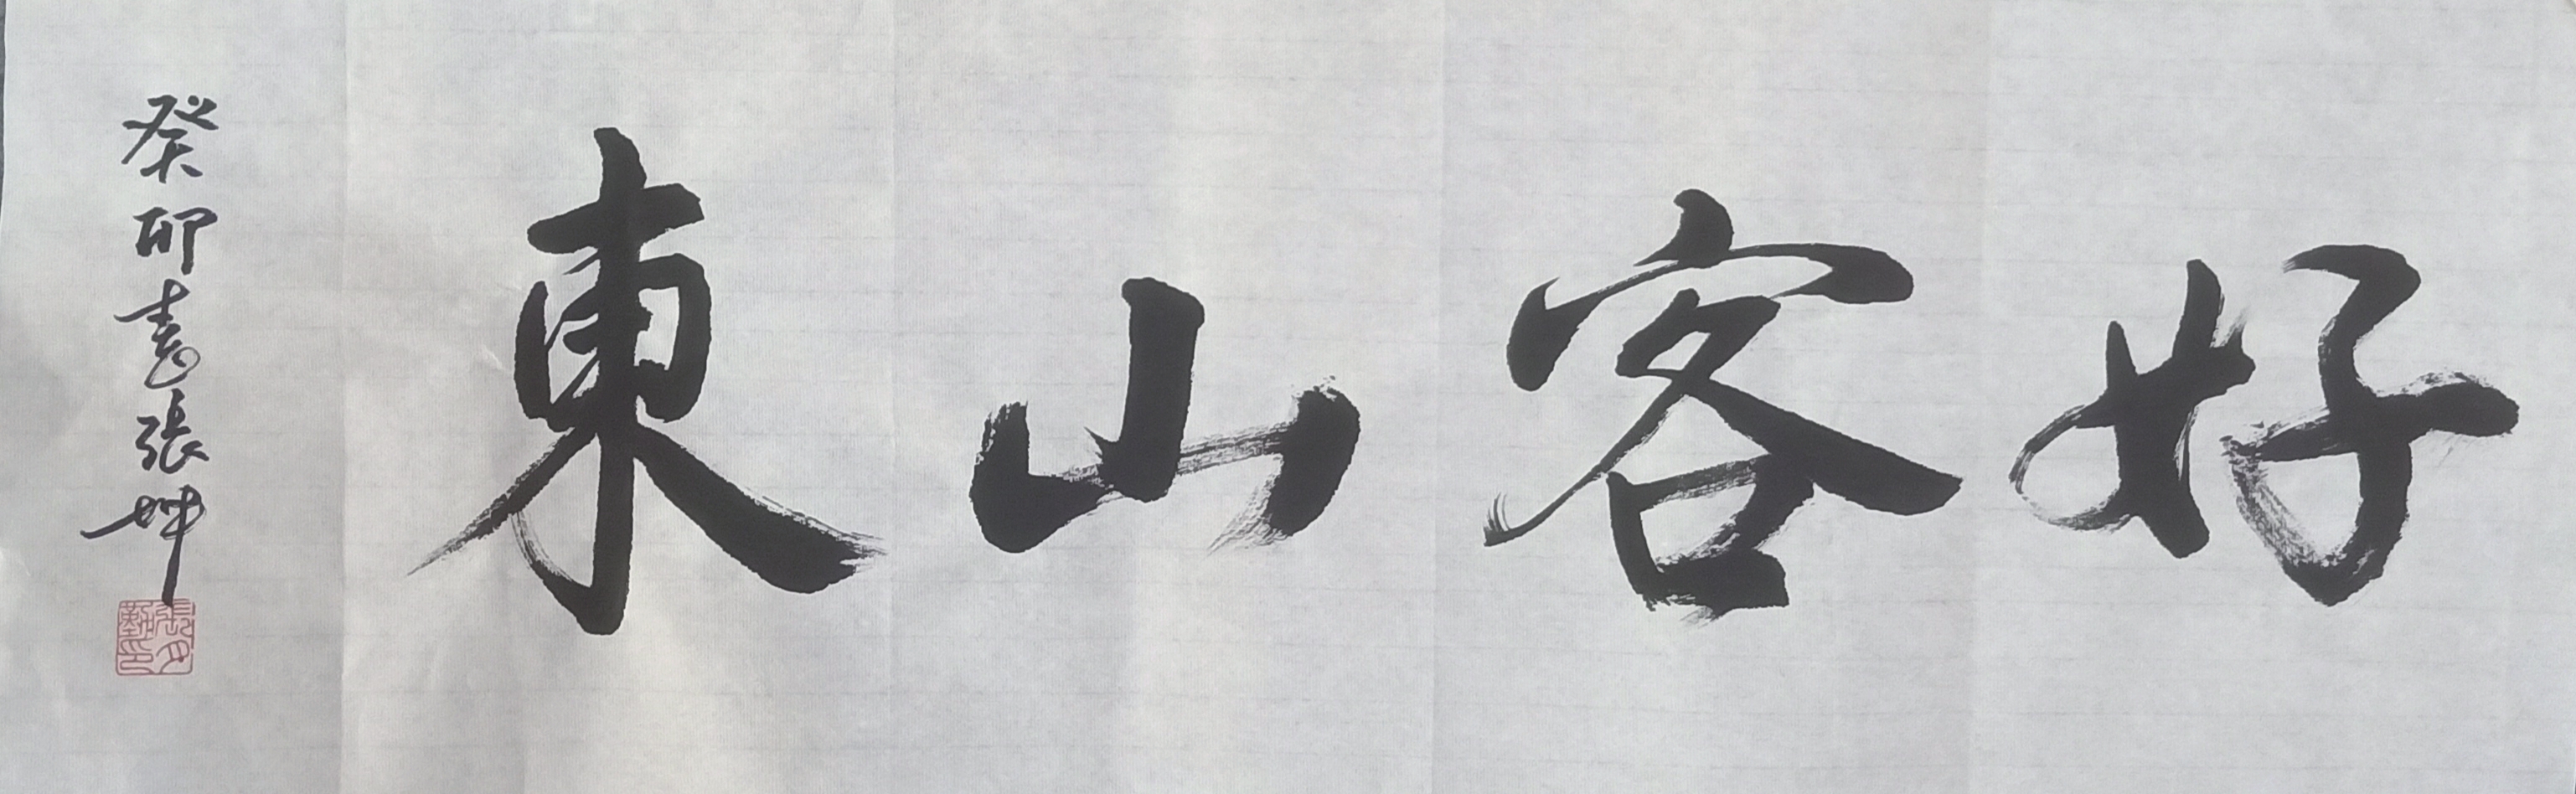 好客山東
癸卯 張坤